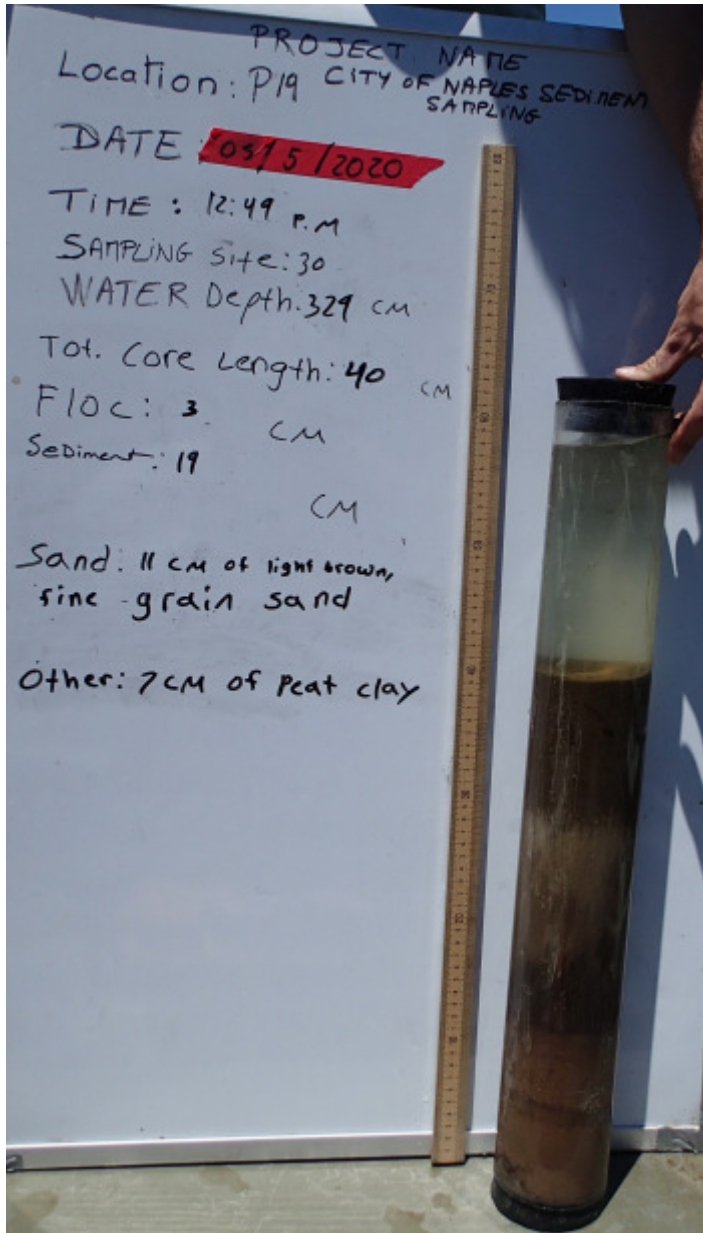 PROJECT NAME
Location: P19 CITY OF NAPLES SEDIMENT
SAMPLING
DATE 03/5/2020
TIME: 12:49 P.M
SAMPLING Site: 30
WATER Depth. 329 CM
Tot. Core Length: 40 CM
Floc: 3 CM
Sediment: 19 CM
Sand: 11 CM of light brown,
fine grain sand
Other: 7 CM of Peat clay
70
60
50
40
30
20
10